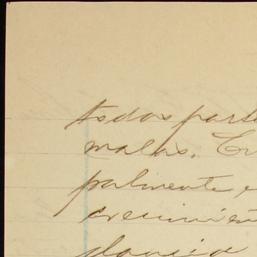 todos part
malas. Cr
palmente e
crecimien